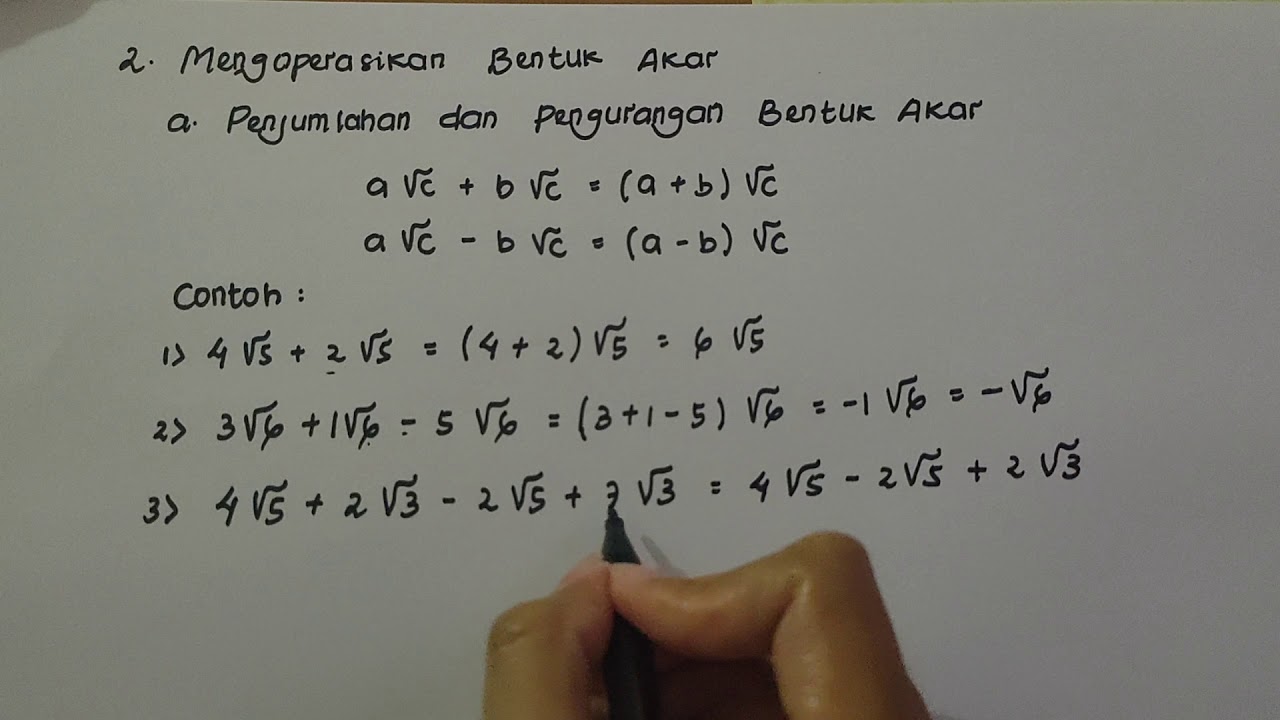 2. Mengoperasikan Bentuk Akar
a. Penjumlahan dan Pengurangan Bentuk Akar
a √c + b √c = (a + b) √c
a √c - b √c = (a - b) √c
Contoh :
1) 4 √5 + 2 √5 = (4 + 2) √5 = 6 √5
2) 3√6 + 1√6 - 5 √6 = (3+1-5) √6 = -1 √6 = -√6
3) 4 √5 + 2 √3 - 2 √5 + √3 = 4 √5 - 2 √5 + 2 √3